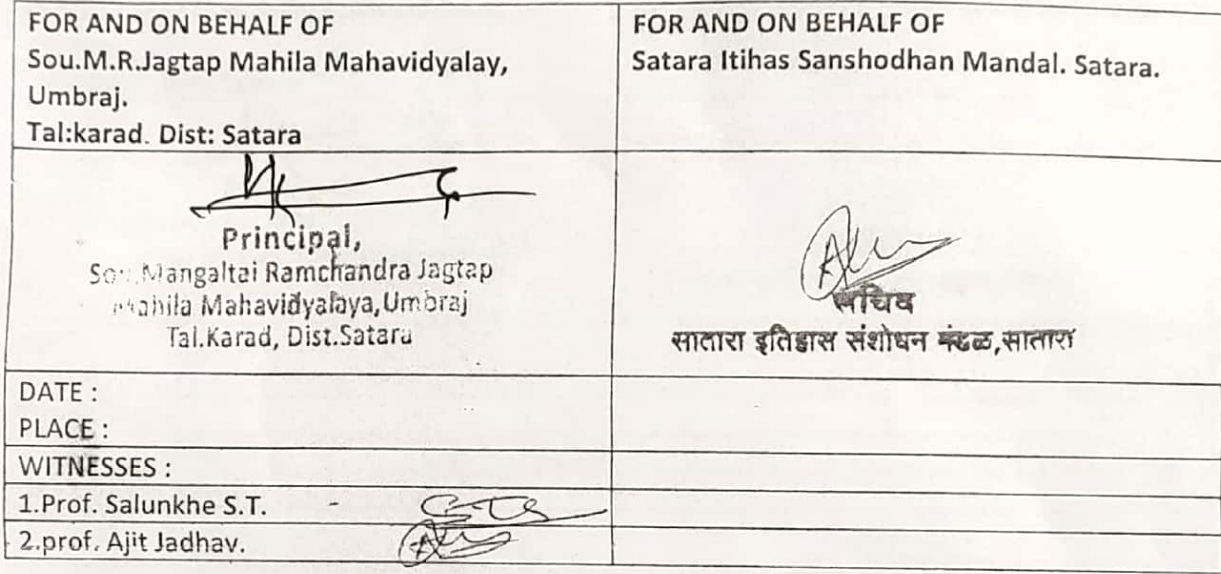 FOR AND ON BEHALF OF
Sou.M.R.Jagtap Mahila Mahavidyalay,
Umbraj.
Tal:karad. Dist: Satara
FOR AND ON BEHALF OF
Satara Itihas Sanshodhan Mandal. Satara.
Principal,
Sou. Mangaltai Ramchandra Jagtap
Mahila Mahavidyalaya,Umbraj
Tal.Karad, Dist.Satara
सचिव
सातारा इतिहास संशोधन मंडळ,सातारा
DATE :
PLACE :
WITNESSES :
1.Prof. Salunkhe S.T.
2.prof. Ajit Jadhav.